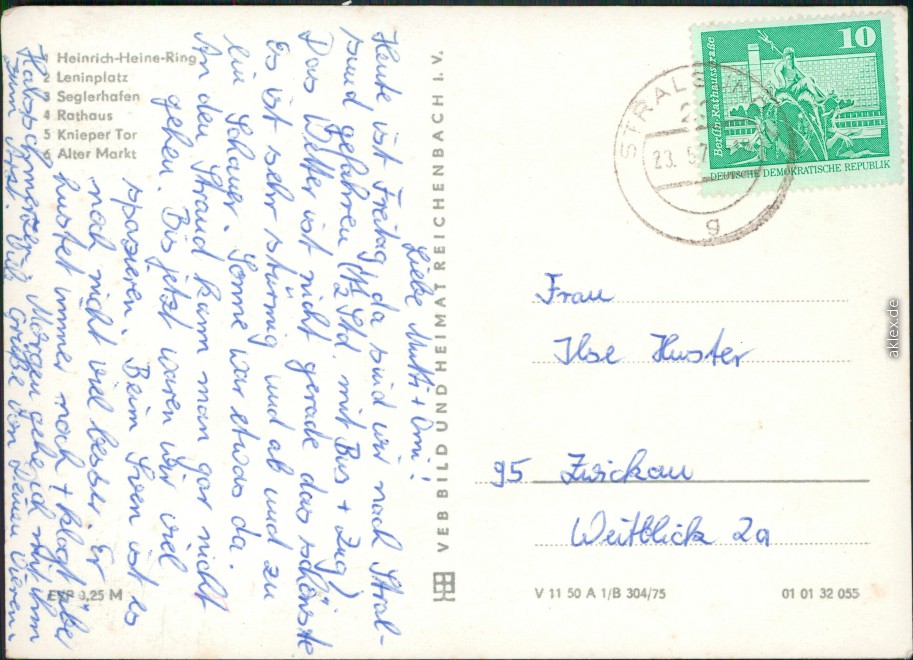 1 Heinrich-Heine-Ring
2 Leninplatz
3 Seglerhafen
4 Rathaus
5 Knieper Tor
6 Alter Markt
Liebe Mutti + Omi!
Heute ist Freitag, da sind wir nach Stral-
sund gefahren (1/2 Std. mit Bus + Zug)
Das Wetter ist nicht gerade das schönste
Es ist sehr stürmig und ab und zu
ein Schauer. Sonne war etwas da.
An den Strand kann man gar nicht
gehen. Bis jetzt waren wir viel
spazieren. Beim Sven ist es
noch nicht viel besser. Er
hustet immer noch + klagt über
Halsschmerzen. Morgen gehe ich mit ihm
zum Arzt. Viele Grüße von Euren Vieren
EVP 0,25 M
VEB BILD UND HEIMAT REICHENBACH I. V.
10
Berlin · Rathausstraße
DEUTSCHE DEMOKRATISCHE REPUBLIK
STRALSUND
23.
g
Frau
Ilse Huster
95 Zwickau
Weitblick 2a
V 11 50 A 1/B 304/75
01 01 32 055
aklex.de